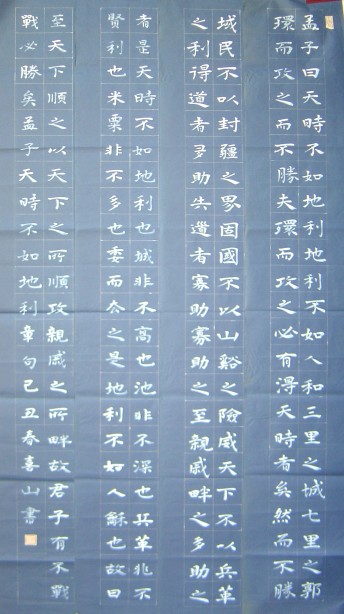 孟子曰天時不如地利地利不如人和三里之城七里之郭
環而攻之而不勝夫環而攻之必有得天時者矣然而不勝
者是天時不如地利也城非不高也池非不深也兵革非不
賢利也米粟非不多也委而去之是地利不如人龢也故曰
域民不以封疆之界固國不以山谿之險威天下不以兵革
之利得道者多助失道者寡助寡助之至親戚畔之多助之
至天下順之以天下之所順攻親戚之所畔故君子有不戰
戰必勝矣孟子天時不如地利章句己丑春喜山書